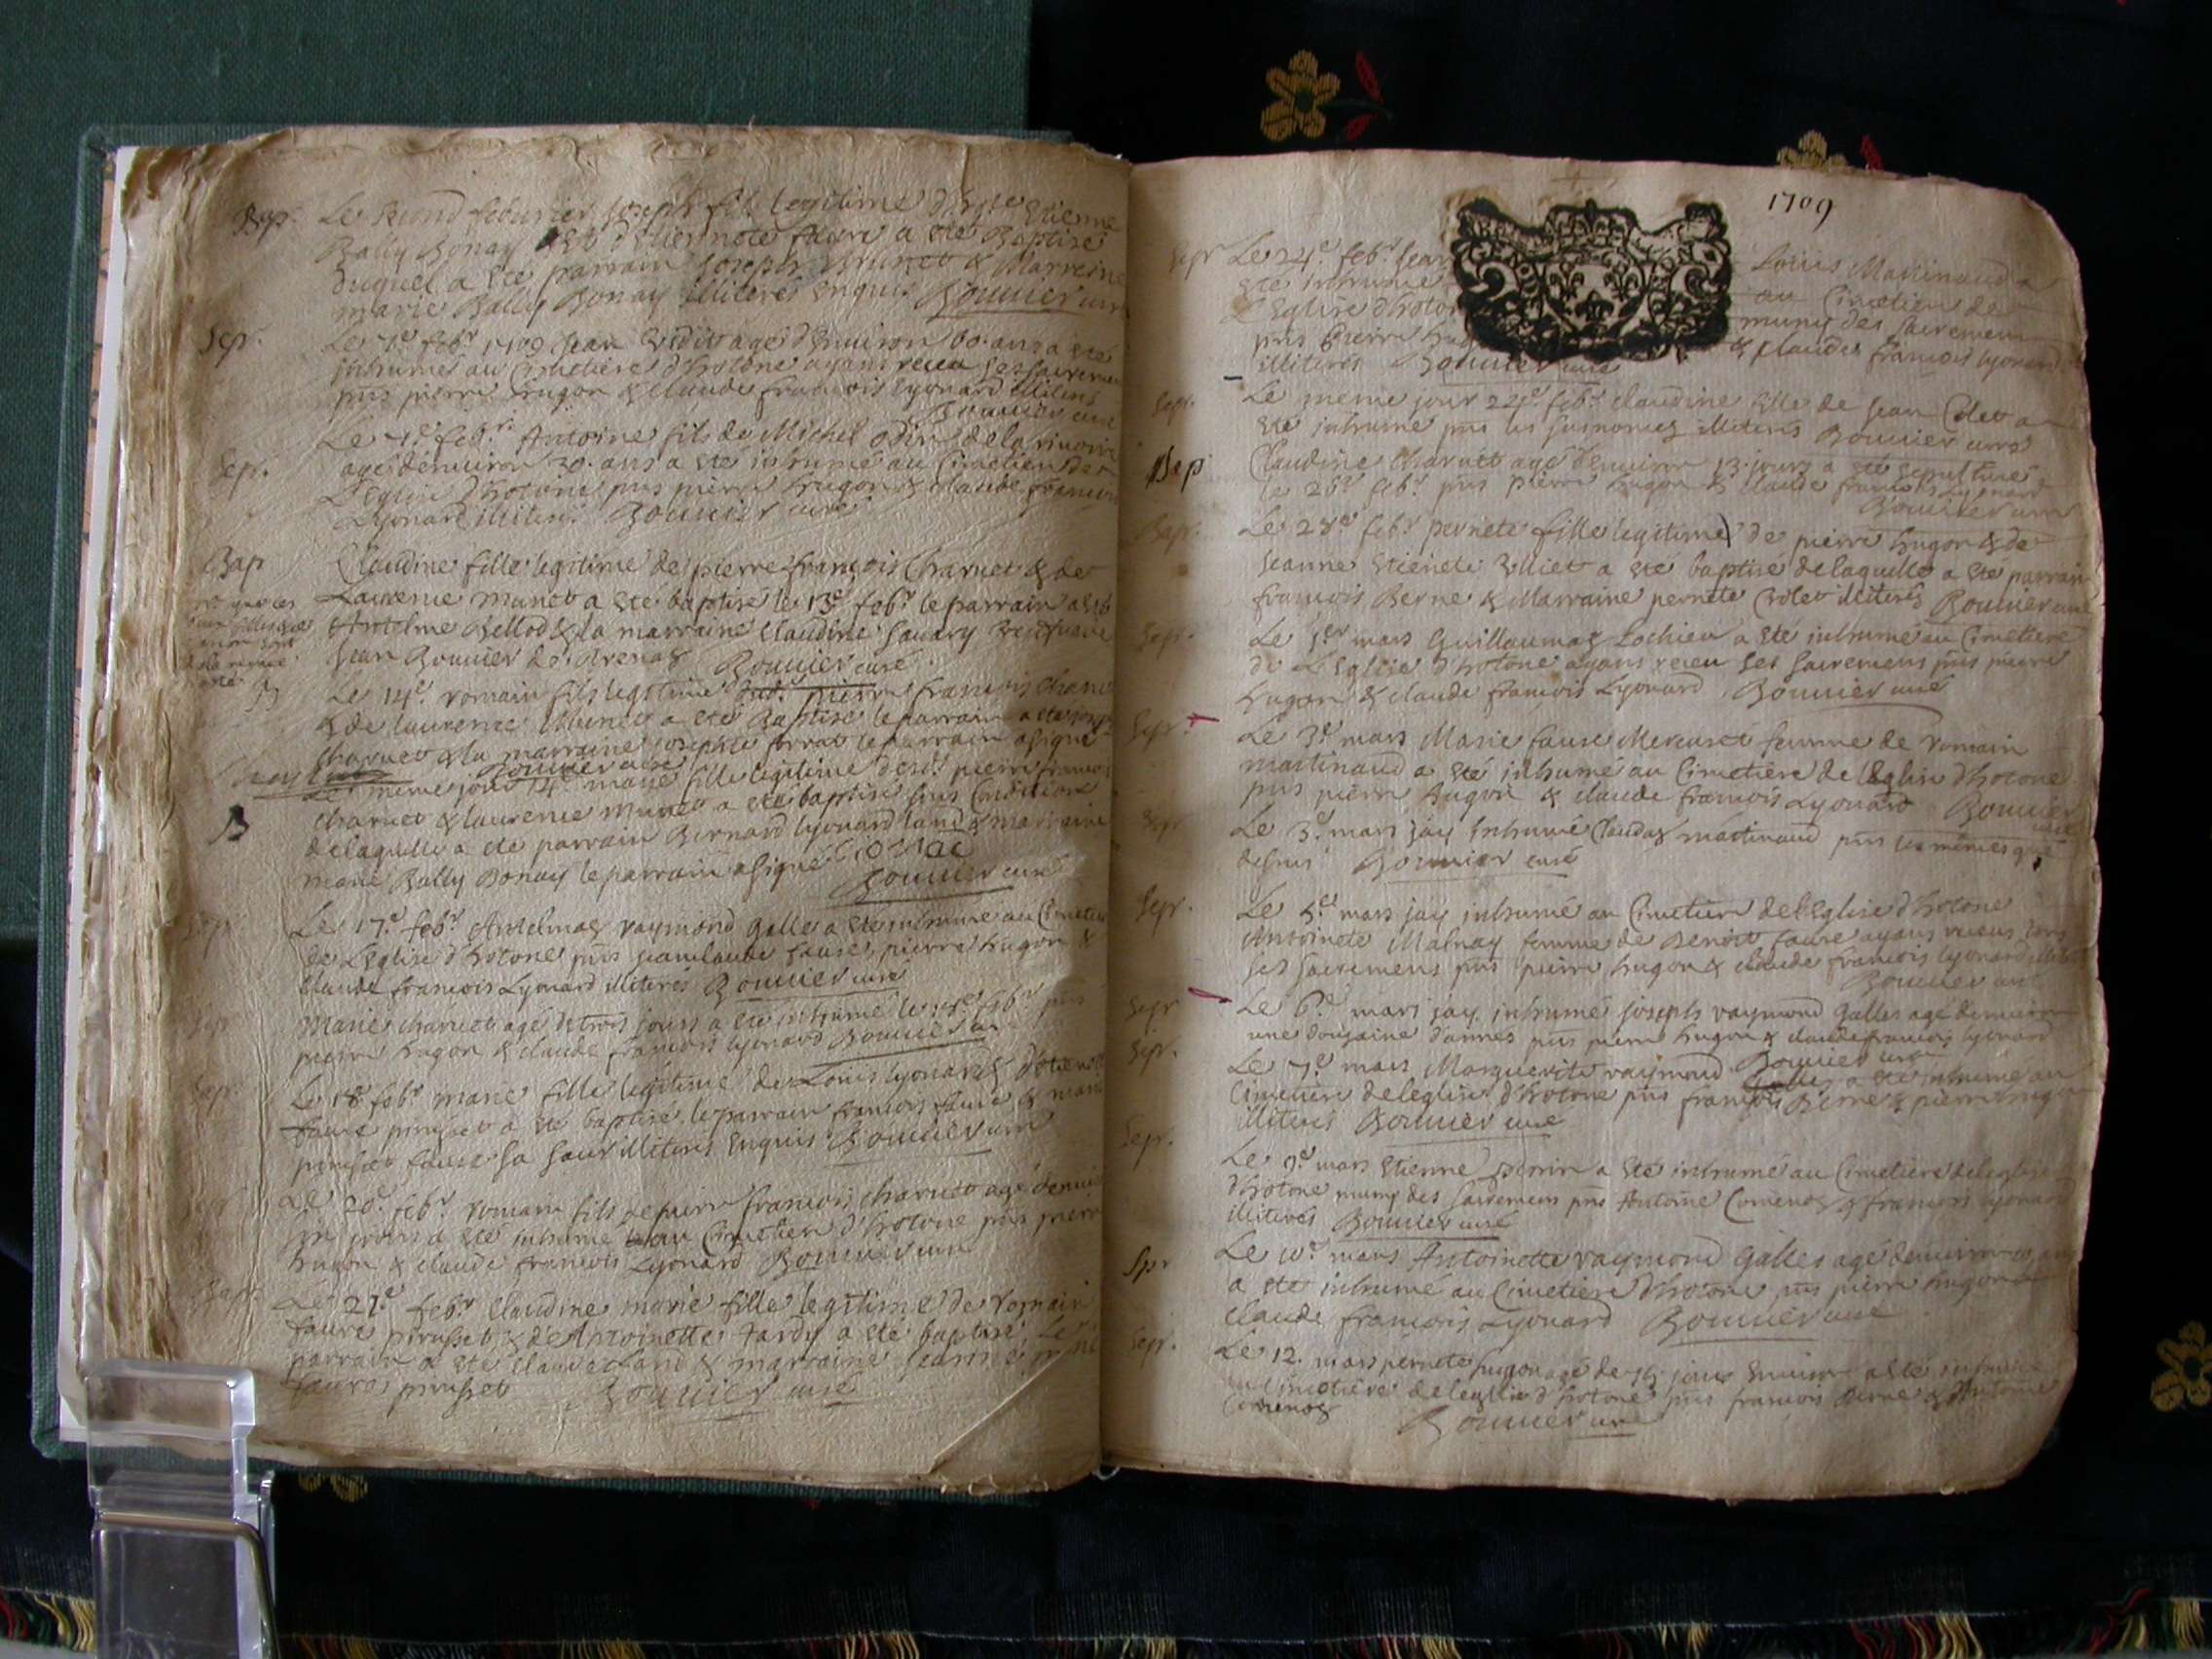 Bap. Le second febvrier Joseph fils legitime d'h^ste Etienne
Bally Bonay & d'Etiennete faure a été Baptisé
duquel a été parrain Joseph Brunet & Marreine
marie Bally Bonay illiterés enquis Bouvier curé
Sep. Le 7^e feb^r 1709 Jean agé d'environ 60. ans a été
inhumé au Cimetiere d'hotone ayant receu ses sacremens
pñs pierre hugon & claude françois Lyonard illiterés
Bouvier curé
Sep. Le 7^e feb^r Antoine fils de Michel odin de la rivoire
agé d'environ 30. ans a été inhumé au Cimetiere de
L'Eglise d'hotone pñs pierre hugon & claude françois
Lyonard illiteré Bouvier curé
Bap Claudine fille legitime de pierre françois Charvet & de
Laurence munet a été baptisé le 13^e feb^r le parrain a été
Antelme Bellod & la marraine Claudine Savary
Jean Bouvier d'arenas Bouvier curé
B Le 14^e romain fils legitime dud^t pierre françois Charvet
& de laurence Munet a été Baptisé le parrain a été joseph
charvet & la marraine josephte ferrat le parrain a signé
Bouvier curé
B Le même jour 14^e marie fille legitime dud^t pierre francois
charvet & laurence munet a été baptisé sous Condition
de laquelle a été parrain Bernard lyonard land & marraine
marie Bally Bonay le parrain a signé
Bouvier curé
Sep. Le 17^e feb^r Antelmaz raymond galle a été inhumé au Cimetiere
de L'Eglise d'hotone pñs jeanclaude faure, pierre hugon &
claude francois Lyonard illiterés Bouvier curé
Sep. Marie charvet agé de trois jours a été inhumé le 17^e feb^r pñs
pierre hugon & claude françois lyonard Bouvier curé
Bap. Le 18^e feb^r marie fille legitime de Louis lyonard & d'etiennete
faure perusset a été baptisé le parrain francois faure & marie
perusset faure sa sœur illiterés enquis Bouvier curé
Sep. Le 20^e feb^r romain fils de pierre francois charvet agé d'environ
six jours a été inhumé au Cimetiere d'hotone pñs pierre
hugon & claude francois Lyonard Bouvier curé
Bap. Le 21^e feb^r Claudine marie fille legitime de romain
faure perusset & de Antoinette tardy a été baptisé, Le
parrain a été claude land & marraine jeanne
faure perusset Bouvier curé
1709
Sepr Le 24^e feb^r Jean Louis Martinaud a
été inhumé au Cimetiere de
L'Eglise d'hotone muny des sacremens
pñs pierre hugon & claude francois lyonard
illiterés Bouvier curé
Sepr. Le même jour 24^e feb^r claudine fille de jean Colet a
été inhumé pñs les susnomés illiterés Bouvier curé
Sep Claudine charvet agé d'environ 13. jours a été sepulturé
le 26^e feb^r pñs pierre hugon & claude francois Lyonard
Bouvier curé
Bap. Le 28^e feb^r pernete fille legitime de pierre hugon & de
jeanne Etienete Billiet a été baptisé de laquelle a été parrain
françois Berne & Marraine pernete Crolet illiterés Bouvier curé
Sepr. Le 1^er mars Guillaumaz Lochieu a été inhumé au Cimetiere
de L'Eglise d'hotone ayans receu ses sacremens pñs pierre
hugon & claude françois Lyonard Bouvier curé
Sepr. Le 3^e mars Marie faure Mercuret femme de romain
martinaud a été inhumé au Cimetière de L'Eglise d'hotone
pñs pierre hugon & claude francois Lyonard Bouvier
curé
Sepr Le 3^e mars jay inhumé Claudaz martinaud pñs les mêmes que
dessus Bouvier curé
Sepr. Le 5^e mars jay inhumé au Cimetiere de l'Eglise d'hotone
Antoinete Malnay femme de Benoit faure ayans receus tous
ses sacremens pñs pierre hugon & claude francois lyonard
Bouvier curé
Sepr Le 6^e mars jay inhumé joseph raymond Galles agé d'environ
une douzaine d'annes pñs pierre hugon & claude francois lyonard
Bouvier curé
Sepr. Le 7^e mars Marguerite raymond Galles a été inhumé au
Cimetiere de leglise d'hotone pñs françois Berne & pierre hugon
illiterés Bouvier curé
Sepr. Le 9^e mars Etienne perrin a été inhumé au Cimetiere de leglise
d'hotone muny des sacremens pñs Antoine Comenoz & francois lyonard
illiterés Bouvier curé
Spr Le 10^e mars Antoinette raymond Galles agé d'environ
a été inhumé au Cimetiere d'hotone pñs pierre hugon &
claude françois Lyonard Bouvier curé
Sepr. Le 12. mars pernete hugon agé de 15 jours environ a été inhumé
au Cimetière de leglise d'hotone pñs francois Berne & Antoine
Comenoz Bouvier curé